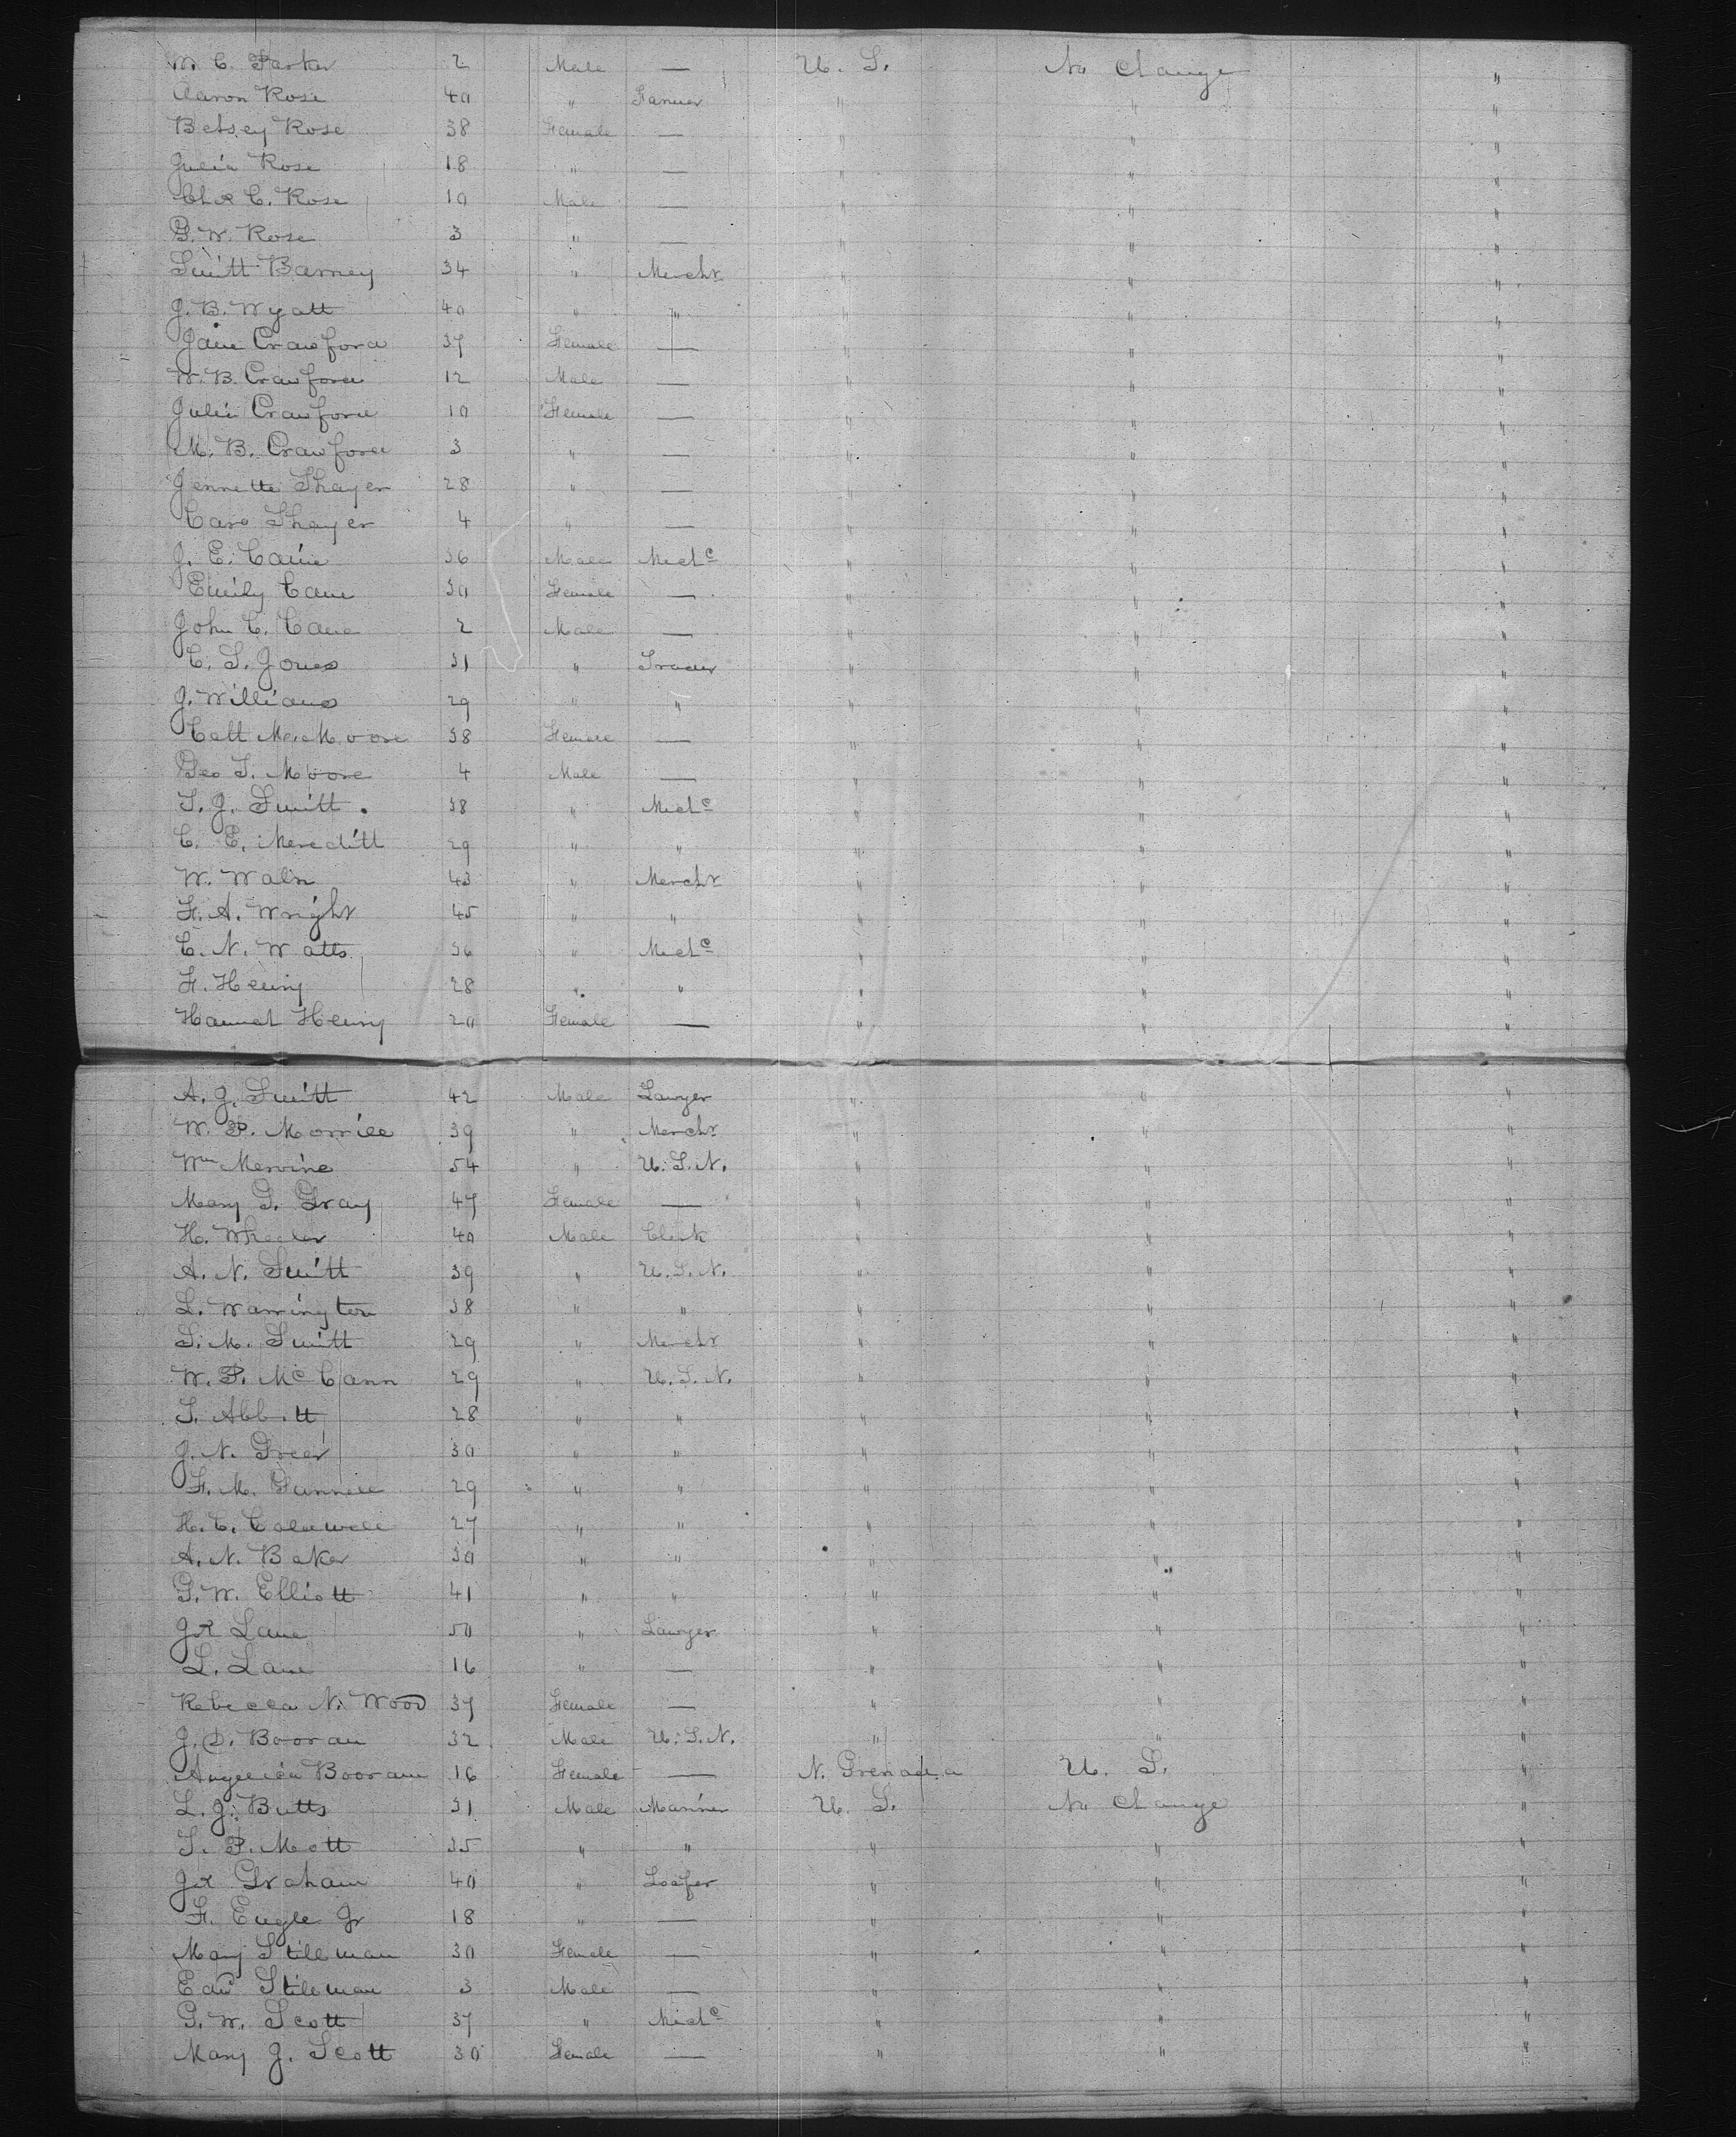 W. C. Parker 2 Male — U. S. No Change "
Aaron Rose 40 " Farmer " " "
Betsey Rose 38 Female — " " "
Julia Rose 18 " — " " "
Chs C. Rose 10 Male — " " "
G. W. Rose 3 " — " " "
Smith Barney 34 " Mercht " " "
J. B. Wyatt 40 " " " " "
Jane Crawford 37 Female — " " "
W. B. Crawford 12 Male — " " "
Julia Crawford 10 Female — " " "
M. B. Crawford 3 " — " " "
Jennette Thayer 28 " — " " "
Caro Thayer 4 " — " " "
J. E. Caine 36 Male Mechc " " "
Emily Cane 30 Female — " " "
John C. Cane 2 Male — " " "
C. S. Jones 31 " Trader " " "
J. Williams 29 " " " " "
Cath Moore 38 Female — " " "
Geo T. Moore 4 Male — " " "
T. J. Smith 38 " Mechc " " "
C. E. Meredith 29 " " " " "
W. Waln 43 " Mercht " " "
F. A. Wright 45 " " " " "
C. N. Watts 36 " Mechc " " "
F. Henry 28 " " " " "
Hannah Henry 20 Female — " " "
A. J. Smith 42 Male Lawyer " " "
W. P. Morrill 39 " Mercht " " "
Wm Mervine 54 " U. S. N. " " "
Mary G. Gray 47 Female — " " "
H. Wheeler 40 Male Clerk " " "
A. N. Smith 39 " U. S. N. " " "
L. Warrington 38 " " " " "
S. M. Smith 29 " Mercht " " "
W. P. McCann 29 " U. S. N. " " "
T. Abbott 28 " " " " "
J. N. Greer 30 " " " " "
F. M. Gunnell 29 " " " " "
H. C. Caldwell 27 " " " " "
A. N. Baker 30 " " " " "
G. W. Elliott 41 " " " " "
Js Lane 50 " Lawyer " " "
L. Lane 16 " — " " "
Rebecca N. Wood 37 Female — " " "
J. D. Booram 32 Male U. S. N. " " "
Angelica Booram 16 Female — N. Grenada U. S. "
L. J. Butts 31 Male Mariner U. S. No Change "
T. P. Mott 35 " " " " "
Js Graham 40 " Loafer " " "
F. Engle Jr 18 " — " " "
Mary Stillman 30 Female — " " "
Edwd Stillman 3 Male — " " "
G. W. Scott 37 " Mechc " " "
Mary J. Scott 30 Female — " " "